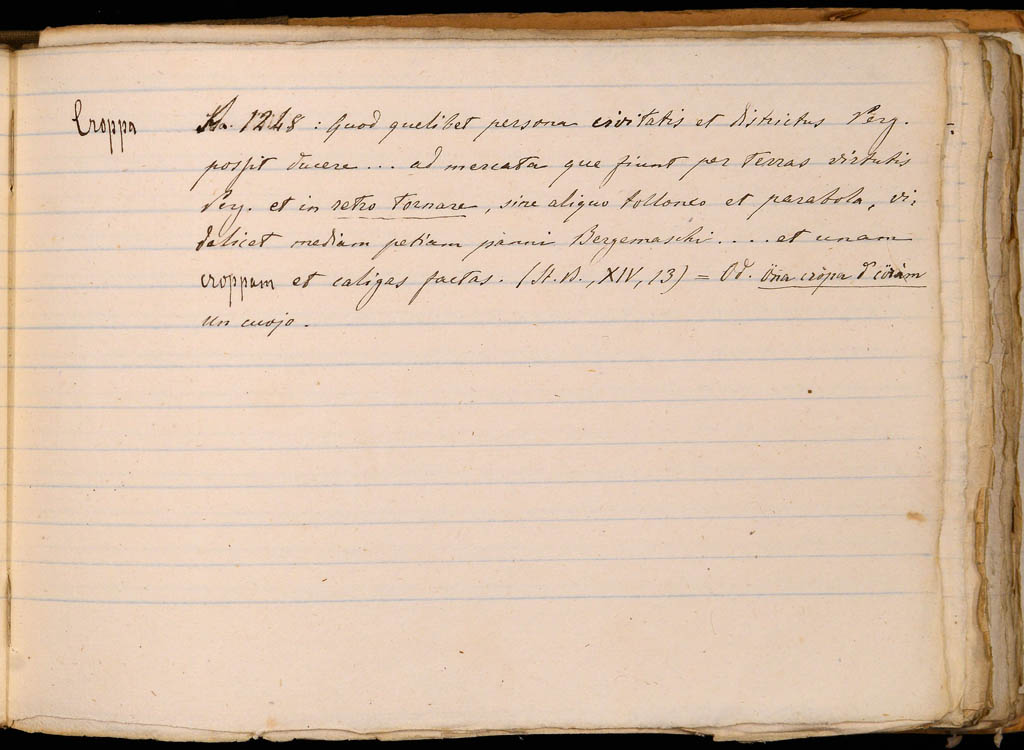 Croppa
An. 1248 : Quod quelibet persona civitatis et districtus Perg.
possit ducere ... ad mercata que fiunt per terras virtutis
Perg. et in retro tornare, sine aliquo tolloneo et parabola, vi,
delicet mediam petiam panni Bergemaschi .... et unam
croppam et caligas factas. (St. B., XIV, 13) = Od. öna cròpa d cöràm
un cuojo.